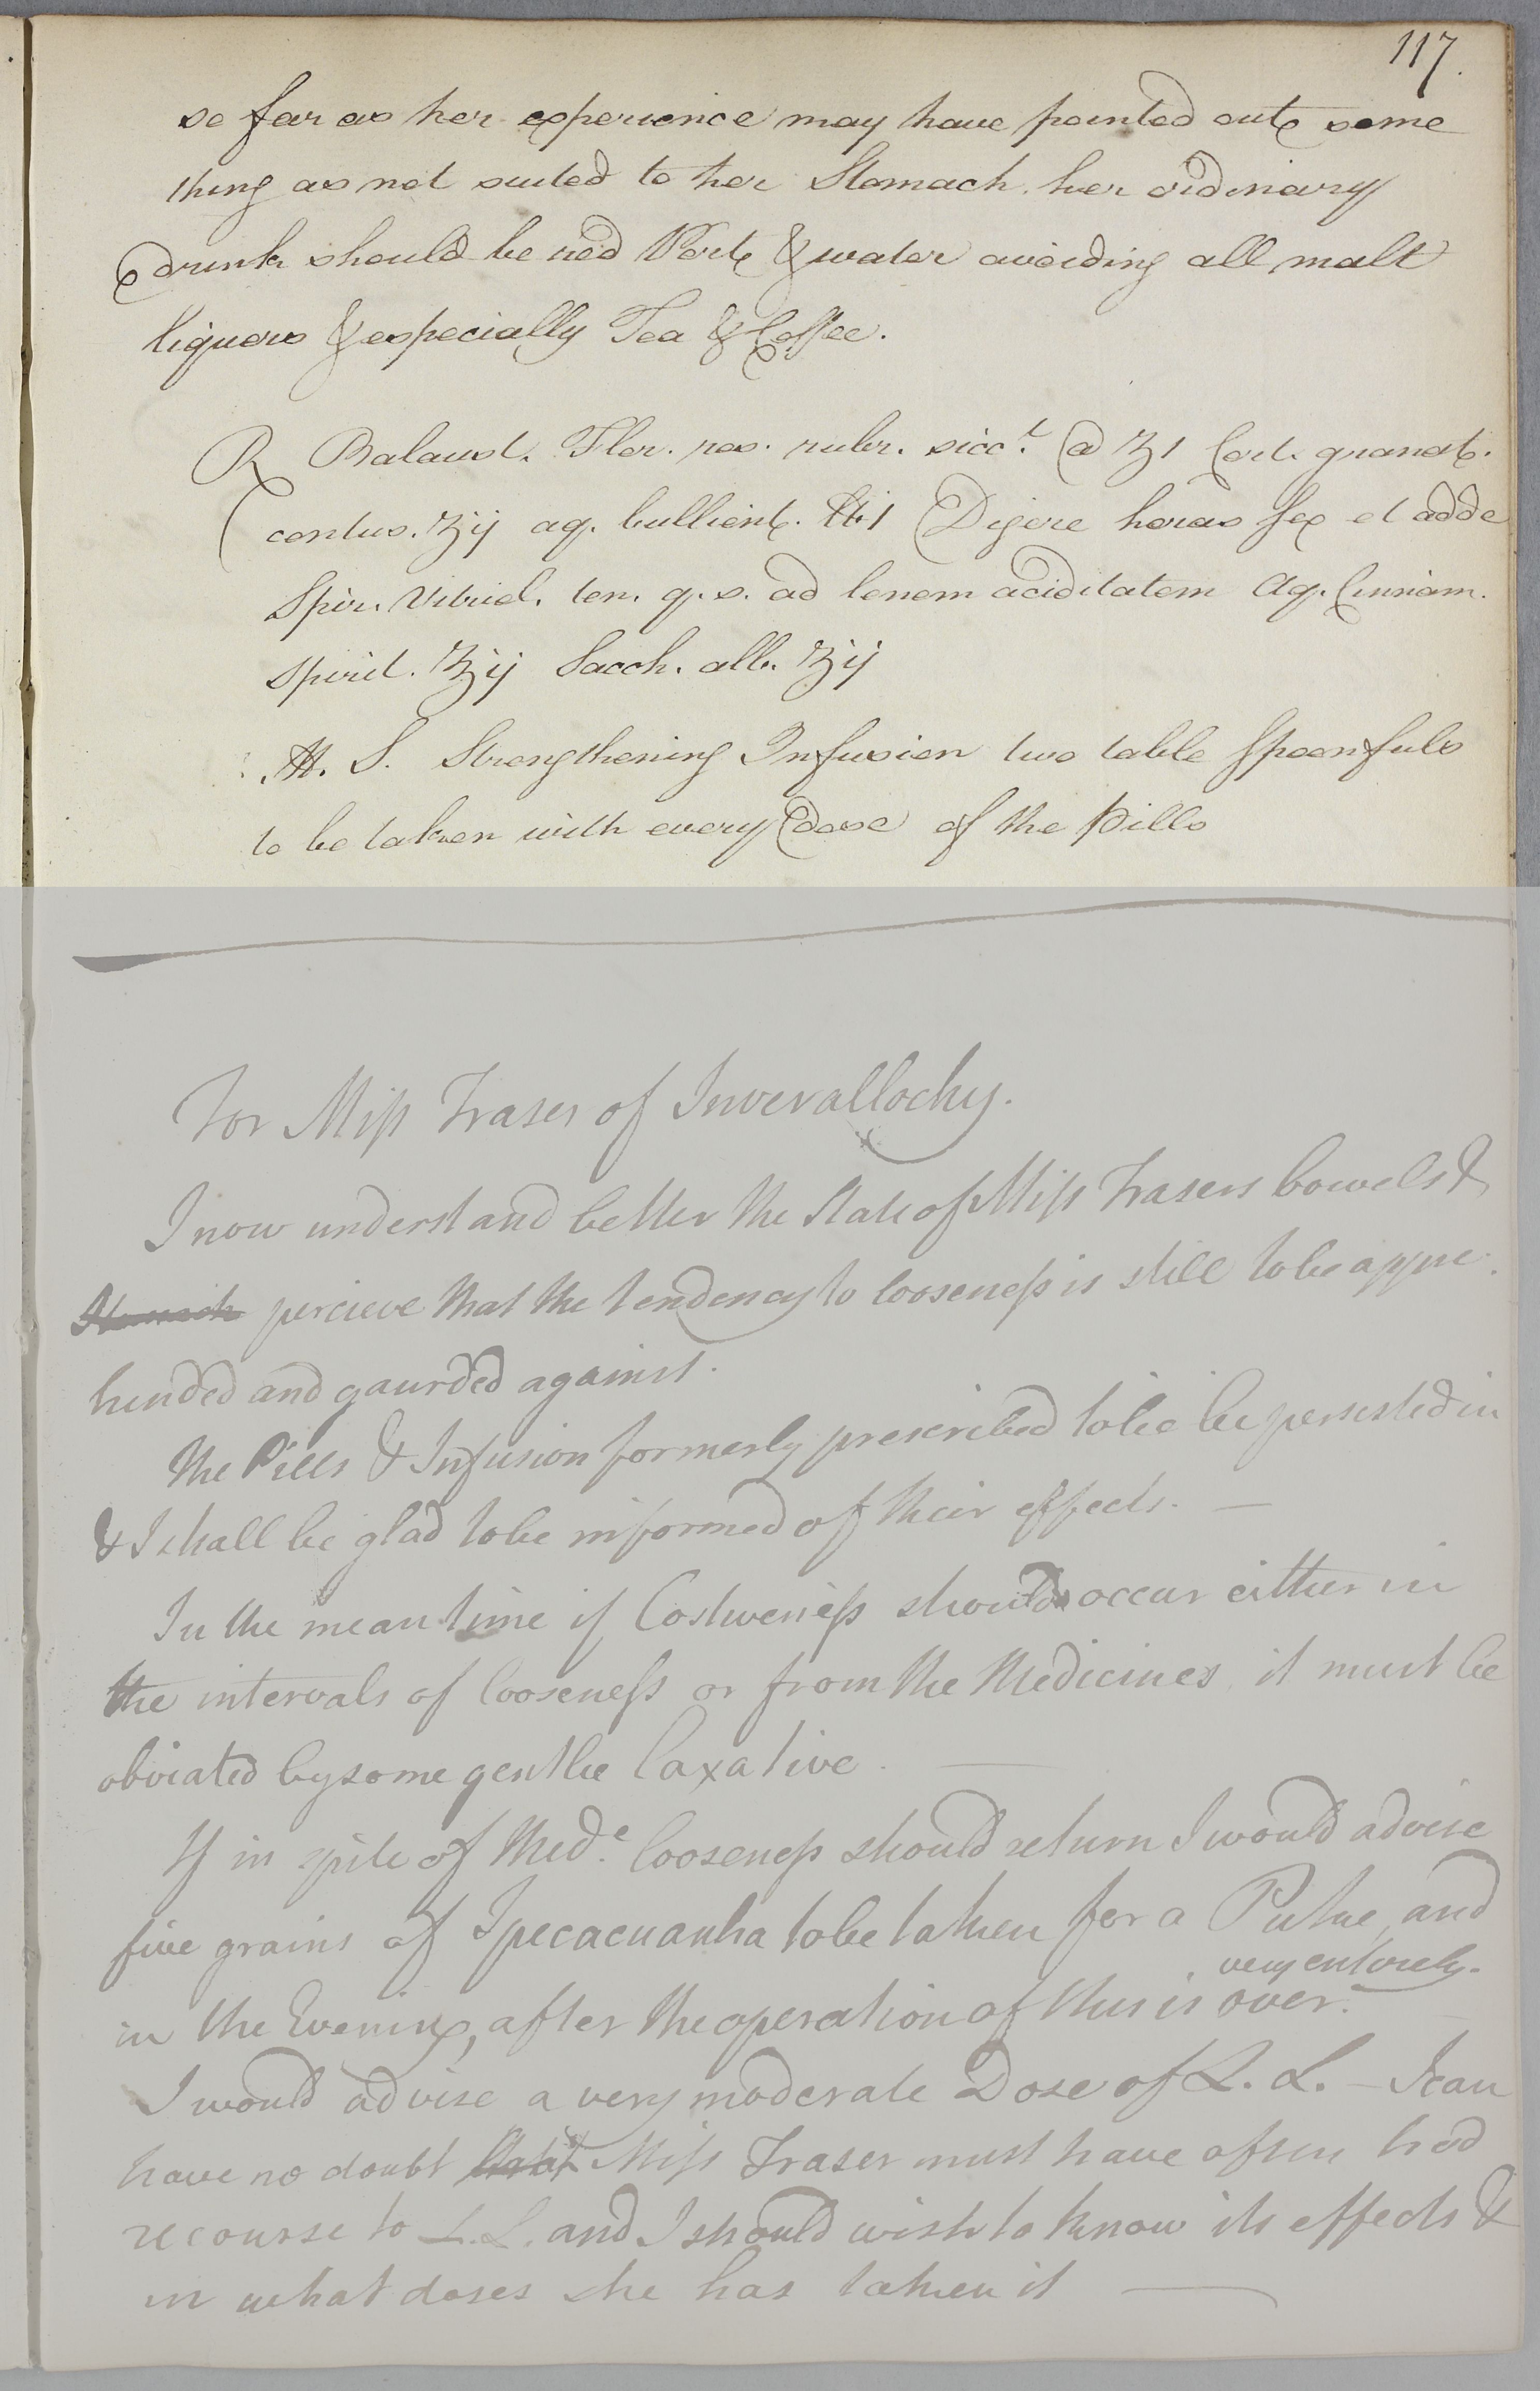 117.
so far as her experience may have pointed out some
thing as not suited to her Stomach. her ordinary
drink should be red Port & water avoiding all malt
liquors & especially Tea & Coffee.
R Balaust. Flor. ros. rubr. sicc.t @ ʒ1 Cort. granat.
contus. ʒij aq. bullient. ℔1 Digere horas sex et adde
Spir. Vitriol. ten. q.s. ad lenem aciditatem Aq. Cinnam.
spirit. ℥ij Sacch. alb. ʒij
M. S. Strengthening Infusion two table spoonfuls
to be taken with every dose of the Pills
For Miss Fraser of Inverallochy.
I now understand better the State of Miss Frasers bowels &
Stomach percieve that the tendency to looseness is still to be appre
hended and gaurded against.
The Pills & Infusion formerly prescribed to be be persisted in
& I shall be glad to be informed of their effects. —
In the mean time if Costiveness should occur either in
the intervals of looseness or from the Medicines it must be
obviated by some gentle laxative. —
If in spite of Med.e looseness should return I would advise
five grains of Ipecacuanha to be taken for a Puke, and
very entirely.
in the Evening, after the operation of this is over.
I would advise a very moderate Dose of L. L. — I can
have no doubt that Miss Fraser must have often had
recourse to L.L. and I should wish to know its effects &
in what doses she has taken it —